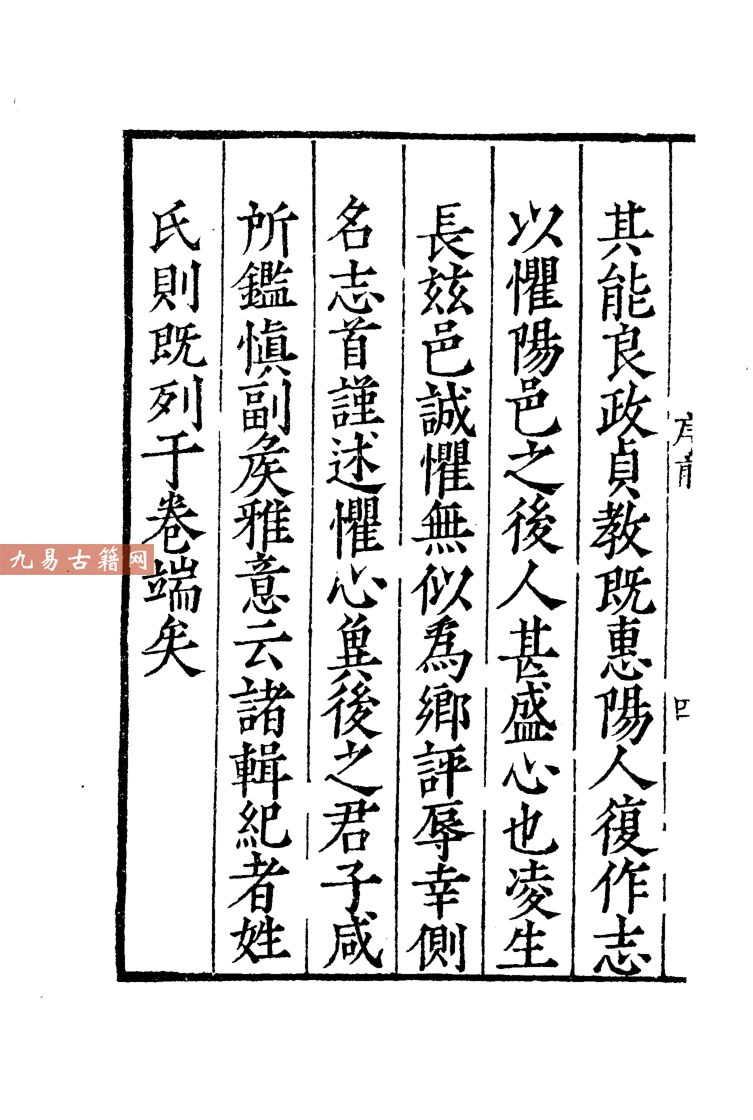 其能良政貞教既惠陽人復作志
以懼陽邑之後人甚盛心也凌生
長茲邑誠懼無似爲鄉評辱幸側
名志首謹述懼心冀後之君子咸
所鑑愼副矦雅意云諸輯紀者姓
氏則既列于卷端矣
四
九易古籍网